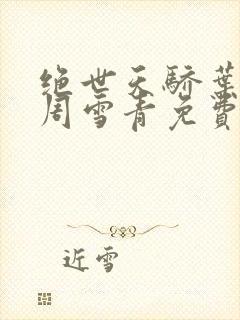 绝世天骄叶
周雪青免费
近雪